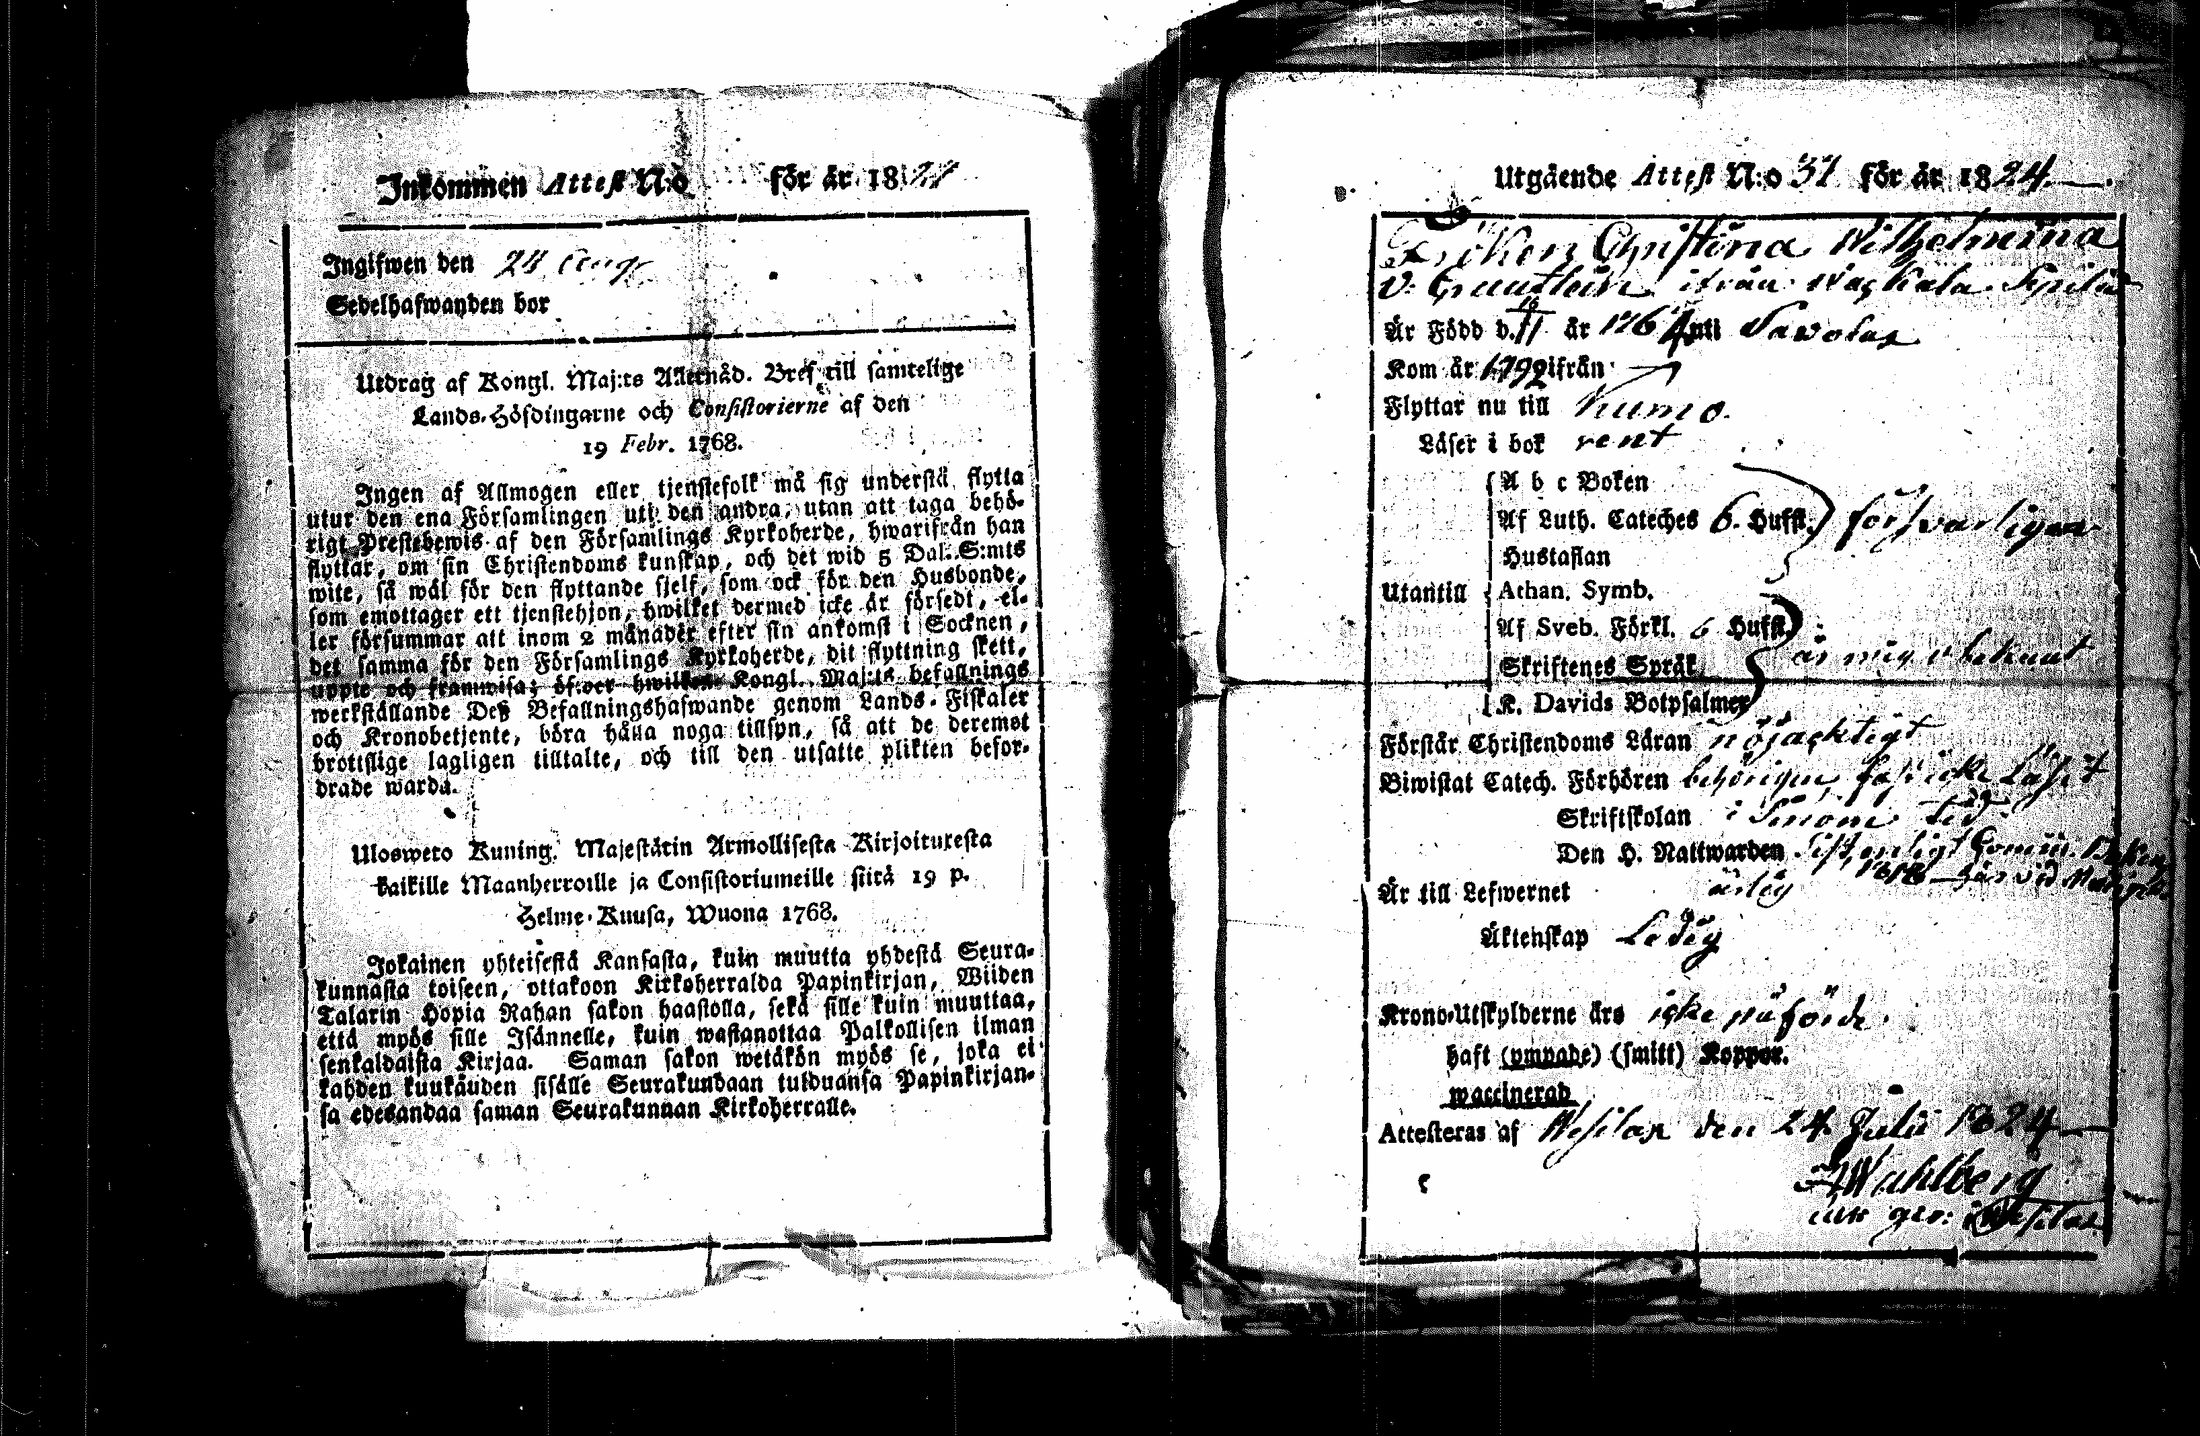 Inkommen Attest N:o för är 1824
Ingifwen den 28 Aug.
Sedelhafwanden bor
Utdrag af Kongl. Maj:ts Allernåd. Bref till samtelige
Lands-Höfdingarne och Consistorierne af den
19 Febr. 1768.
Ingen af Allmogen eller tjenstefolk må sig understå flytta
utur den ena Församlingen uti den andra, utan att taga behö-
rigt Prestebewis af den Församlings Kyrkoherde, hwarifrån han
flyttar, om sin Christendoms kunskap, och det wid 5 Dal. S:mts
wite, så wäl för den flyttande sjelf, som ock för den Husbonde,
som emottager ett tjenstehjon, hwilket dermed icke är försedt, el-
ler försummar att inom 2 månader efter sin ankomst i Socknen,
det samma för den Församlings Kyrkoherde, dit flyttning skett,
uppte och framwisa; öfwer hwilken Kongl. Maj:ts befallnings
werkställande Deß Befallningshafwande genom Lands-Fiskaler
och Kronobetjente, böra hålla noga tillsyn, så att de deremot
brottslige lagligen tilltalte, och till den utsatte plikten befor-
drade warda.
Ulosweto Kuning. Majestätin Armollisesta Kirjoituxesta
kaikille Maanherroille ja Consistoriumeille siitä 19 p.
Helme-Kuusa, Wuona 1768.
Jokainen yhteisestä Kansasta, kuin muutta yhdestä Seura-
kunnasta toiseen, ottakoon Kirkoherralda Papinkirjan, Wiiden
Talarin Hopia Rahan sakon haastolla, sekä sille kuin muuttaa,
että myös sille Isännelle, kuin wastanottaa Palkollisen ilman
senkaldaista Kirjaa. Saman sakon wetäkön myös se, joka ei
kahden kuukauden sisälle Seurakundaan tulduansa Papinkirjan-
sa edesandaa saman Seurakunnan Kirkoherralle.
Utgående Attest N:o 31 för är 1824.
Fröken Christina Wilhelmina
v. ifrån
Är Född d. 16/11 år 1764 uti Savolax
Kom år 1792 ifrån
Flyttar nu till Kumo.
Läser i bok rent
A b c Boken
Af Luth. Cateches 6. Hufst. försvarligen
Hustaflan
Utantill Athan. Symb.
Af Sveb. Förkl. 6 Hufst.
Skriftenes Språk är mig obekant
K. Davids Botpsalmer
Förstår Christendoms Läran nöjacktigt
Biwistat Catech. Förhören behörigen, icke Läsit
Skriftskolan i Sinom tid
Den H. Nattwarden Sist enligt 1818 här vid
Är till Lefwernet ärlig
Äktenskap Ledig
Krono-Utskylderne äro icke påförde.
haft (ympade) (smitt) Koppor.
waccinerad
Attesteras af Wesilax den 24 Julii 1824
Wahlberg
i Wesilax